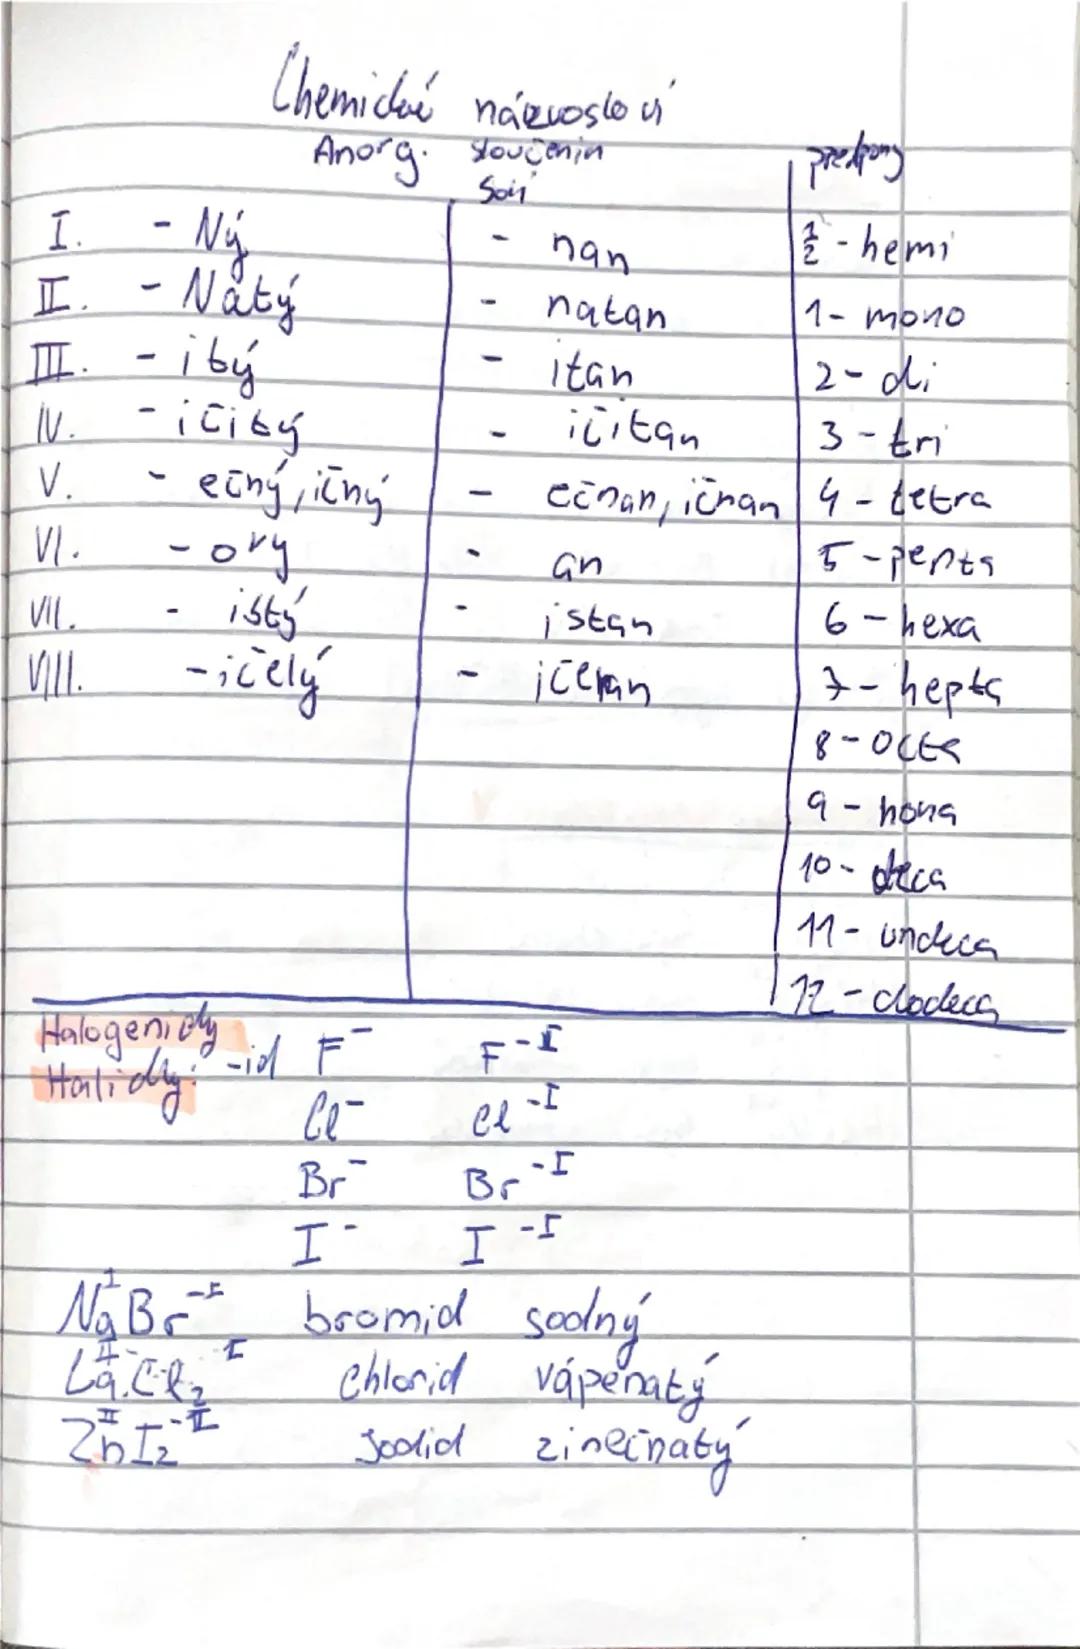 Chemické názvosloví
Anorg. sloučenin
Solí
předpony
I. - Ný - nan ½ - hemi
II. - Natý - natan 1 - mono
III. - itý - itan 2 - di
IV. - ičitý - ičitan 3 - tri
V. - ečný, ičný - ečnan, ičnan 4 - tetra
VI. - ový - an 5 - penta
VII. - istý - istan 6 - hexa
VIII. - ičelý - ičelan 7 - hepta
8 - octa
9 - nona
10 - deca
11 - undeca
12 - dodeca
Halogenidy
Halidy: -id F⁻ F^-I
Cl⁻ Cl^-I
Br⁻ Br^-I
I⁻ I^-I
Na^I Br^-I bromid sodný
Ca^II Cl₂^-I chlorid vápenatý
Zn^II I₂^-II Jodid zinečnatý